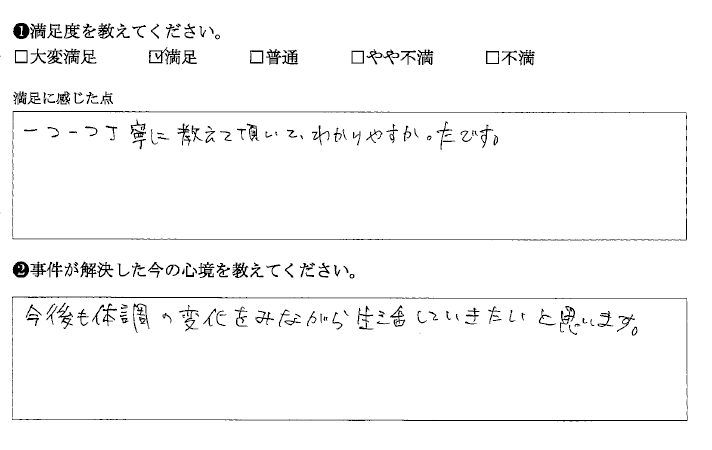 ❶満足度を教えてください。
□大変満足 ☑満足 □普通 □やや不満 □不満
満足に感じた点
一つ一つ丁寧に教えて頂いて、わかりやすかったです。
❷事件が解決した今の心境を教えてください。
今後も体調の変化をみながら生活していきたいと思います。